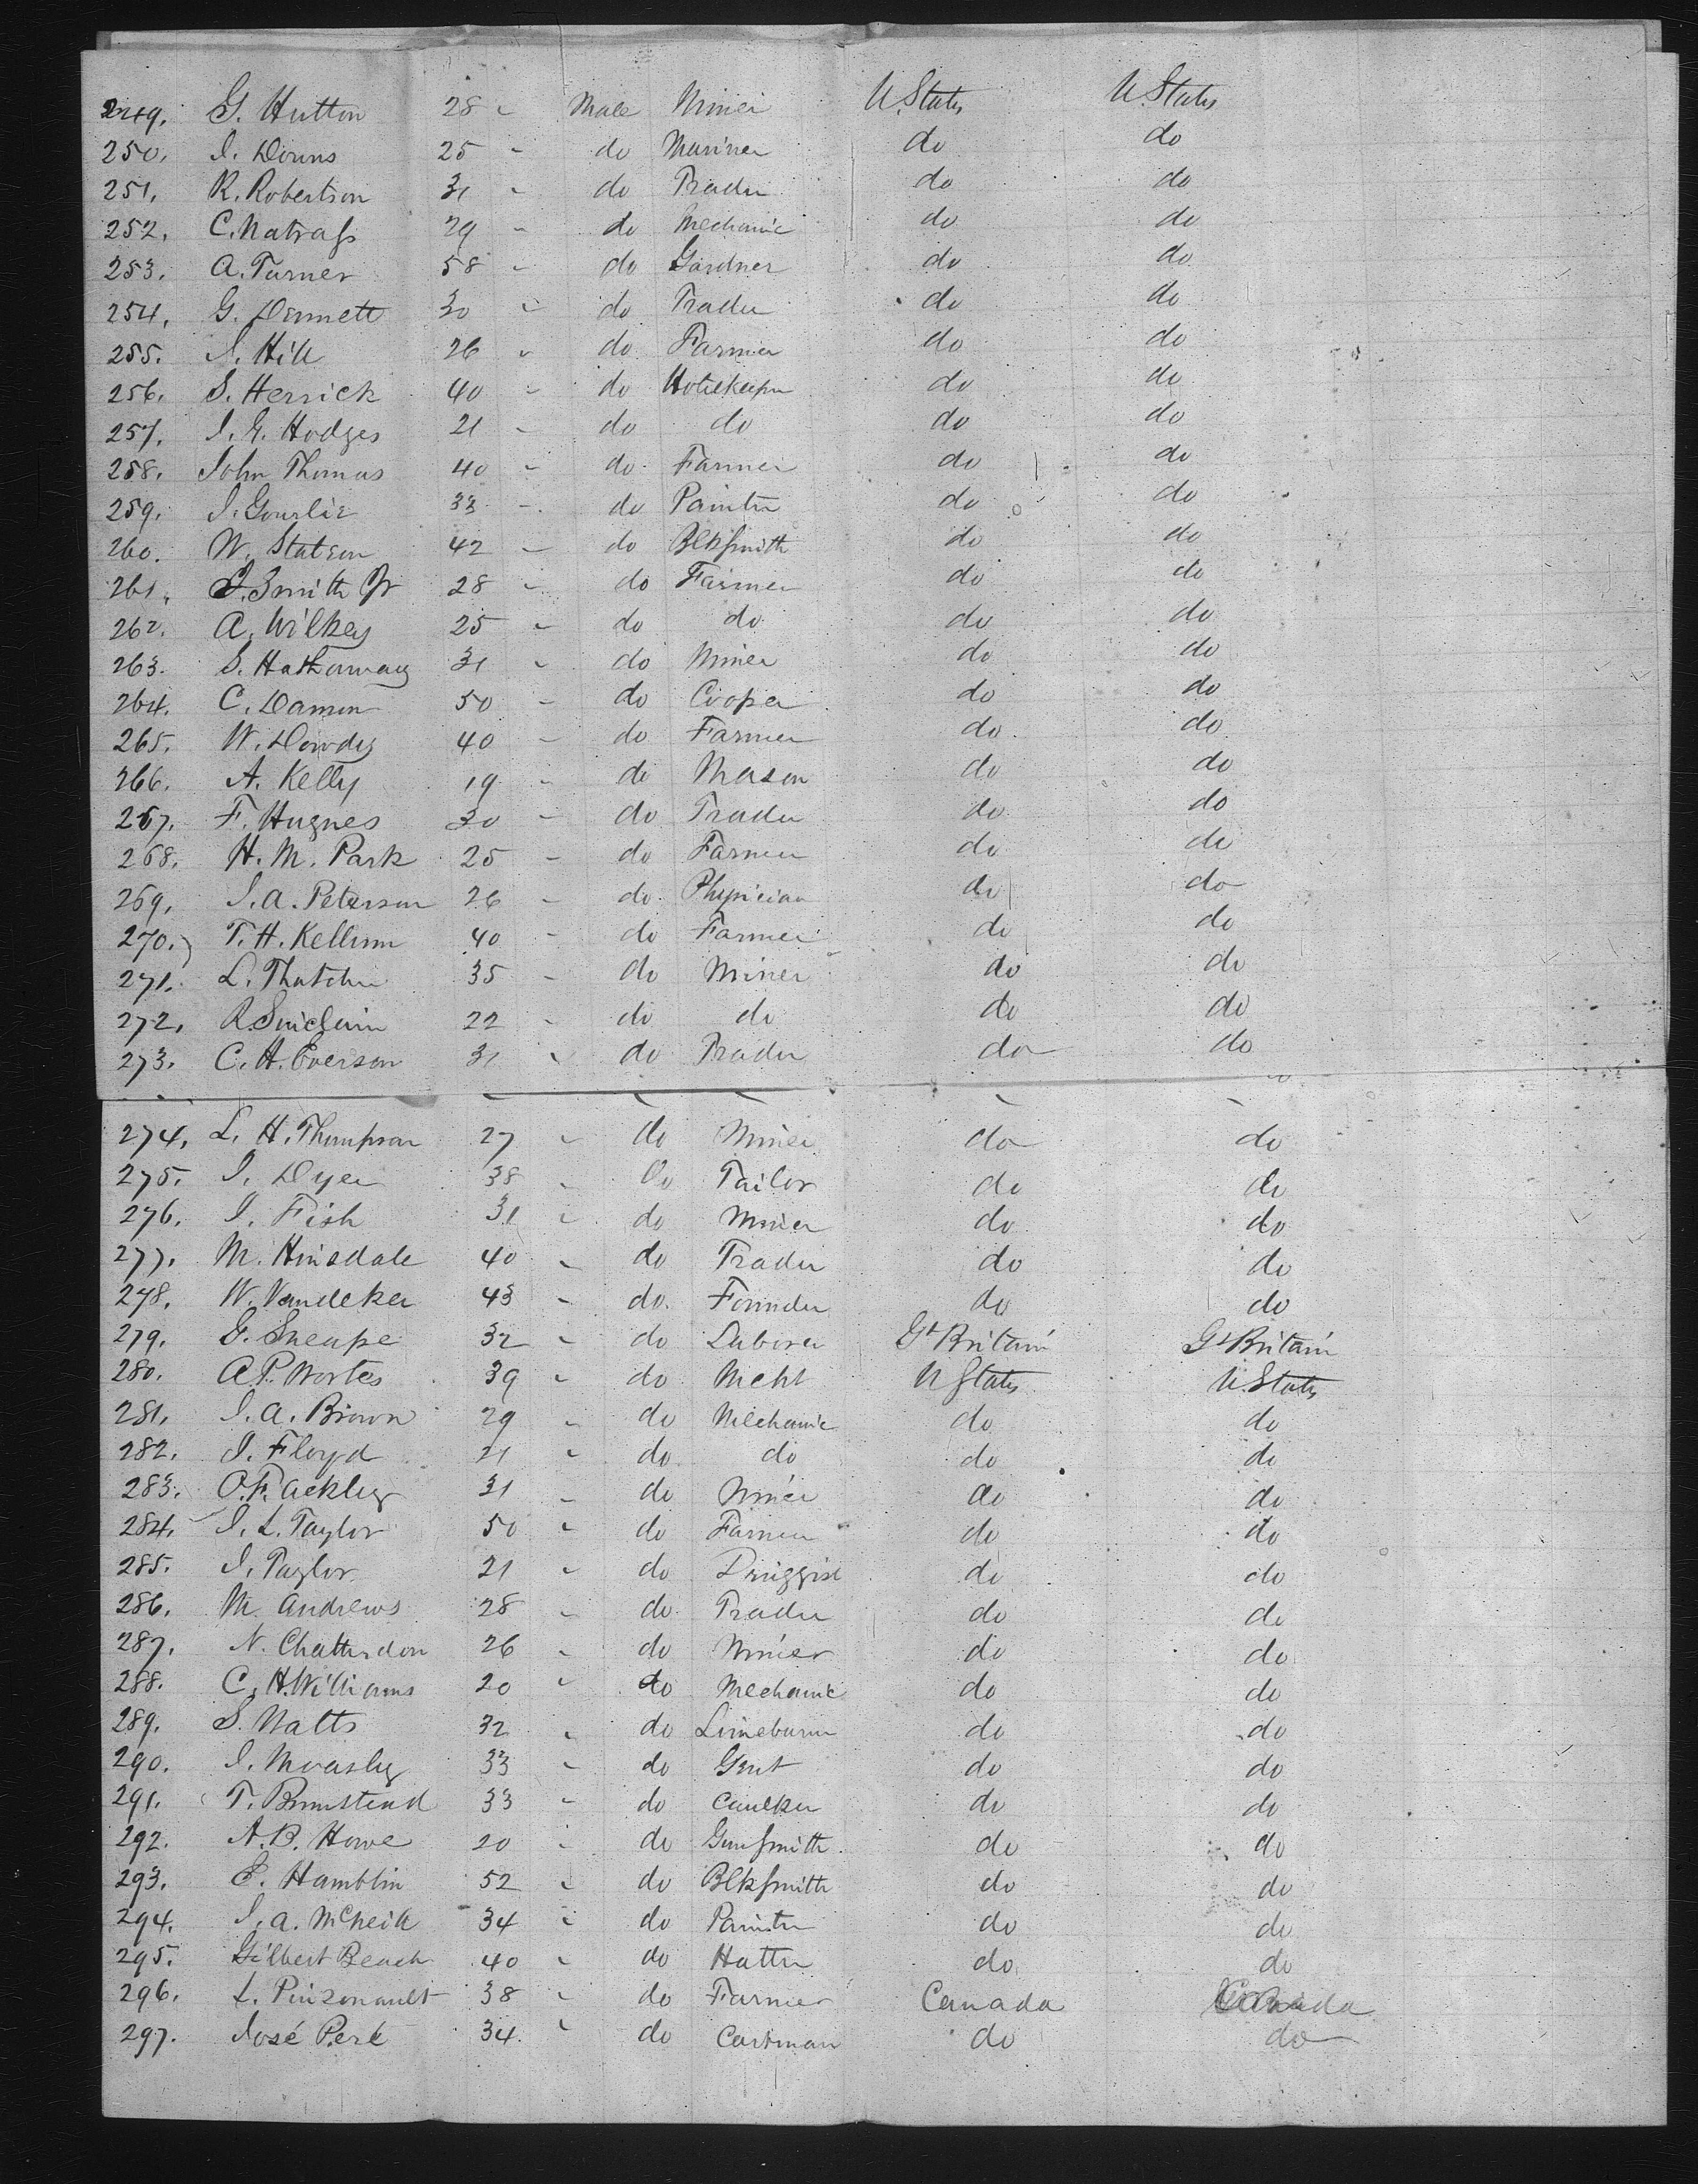 249. G. Hutton 28 " Male Miner U.States U.States
250. I. Downs 25 " do Mariner do do
251. R. Robertson 31 " do Trader do do
252. C. Natrass 29 " do Mechanic do do
253. A. Turner 58 " do Gardner do do
254. G. Dennett 30 " do Trader do do
255. S. Hill 26 " do Farmer do do
256. S. Herrick 40 " do Hotelkeeper do do
257. I. G. Hodges 21 " do do do do
258. John Thomas 40 " do Farmer do do
259. I. Gourlie 33 " do Painter do do
260. W. Statson 42 " do Blksmith do do
261. I. Smith Jr 28 " do Farmer do do
262. A. Wilkey 25 " do do do do
263. S. Hathaway 31 " do Miner do do
264. C. Damon 50 " do Cooper do do
265. W. Dowdy 40 " do Farmer do do
266. A. Kelly 19 " do Mason do do
267. F. Hugnes 30 " do Trader do do
268. H. M. Park 25 " do Farmer do do
269. I. A. Peterson 26 " do Physician do do
270. T. H. Kellum 40 " do Farmer do do
271. L. Thatcher 35 " do Miner do do
272. R. 22 " do do do do
273. C. H. Everson 31 " do Trader do do
274. L. H. Thompson 27 " do Miner do do
275. I. Dyer 38 " do Tailor do do
276. I. Fish 31 " do Miner do do
277. M. Hinsdale 40 " do Trader do do
278. W. Vandeker 43 " do Founder do do
279. G. Sneape 32 " do Laborer Gt Britain Gt Britain
280. A. P. Wortes 39 " do Mcht U States U.States
281. I. A. Brown 29 " do Mechanic do do
282. I. Floyd 21 " do do do do
283. O. F. Ackley 31 " do Miner do do
284. I. L. Taylor 50 " do Farmer do do
285. I. Taylor 21 " do Druggist do do
286. M. Andrews 28 " do Trader do do
287. N. Chatterdon 26 " do Miner do do
288. C. H. Williams 20 " do Mechanic do do
289. S. Natts 32 " do Limeburner do do
290. I. Moasley 33 " do Gent do do
291. T. Brumstead 33 " do Caulker do do
292. A. B. Howe 20 " do Gunsmith do do
293. E. Hamblin 52 " do Blksmith do do
294. I. A. McNeill 34 " do Painter do do
295. Gilbert Beach 40 " do Hatter do do
296. L. Pinzonault 38 " do Farmer Canada Canada
297. José Perk 34 " do Cartman do do